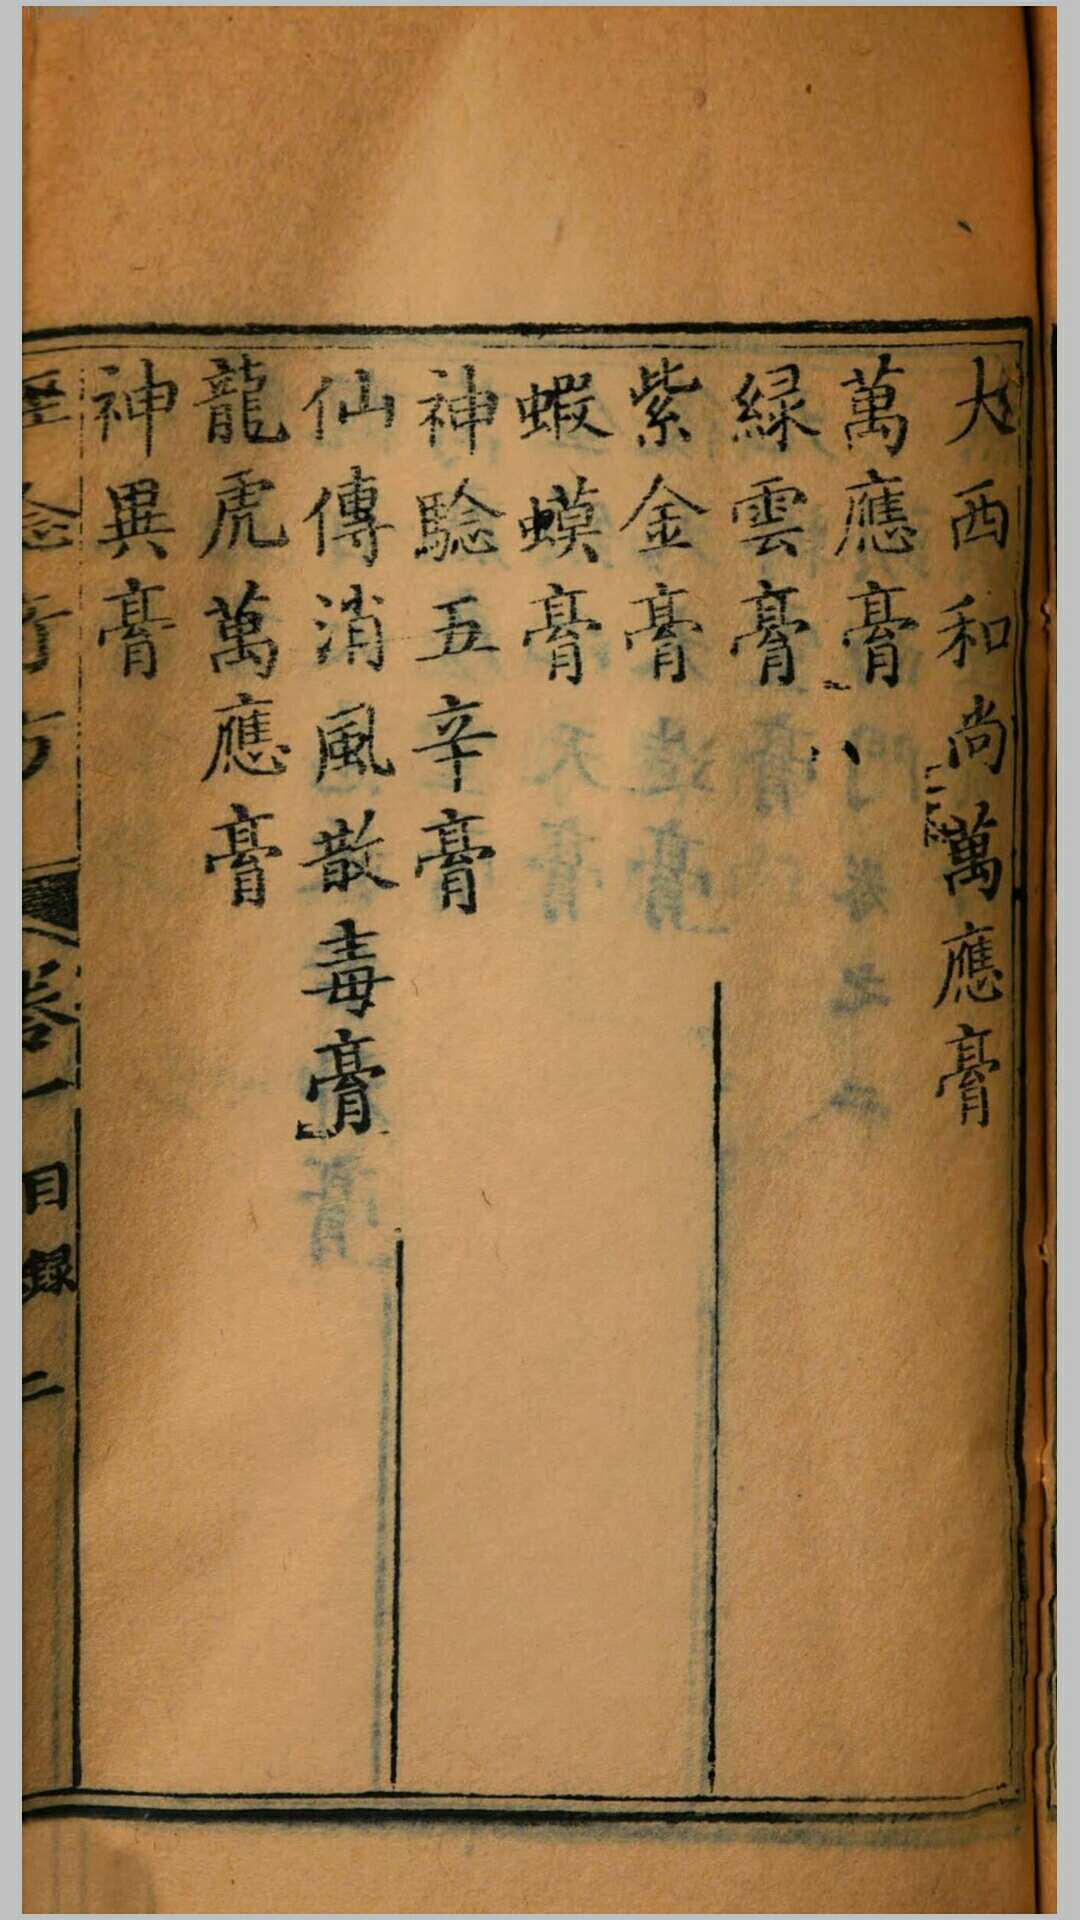 大西和尚萬應膏
萬應膏
緑雲膏
紫金膏
蝦蟆膏
神驗五辛膏
仙傳消風散毒膏
龍虎萬應膏
神異膏
卷一
目録
二